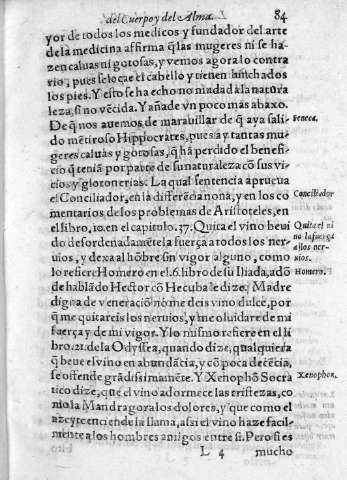 del Cuerpo y del Alma. 84
yor de todos los medicos y fundador del arte
de la medicina affirma q̃ las mugeres ni se ha-
zen caluas ni gotosas, y vemos agora lo contra
rio, pues se le cae el cabello y tienen hinchados
los pies. Y esto se ha echo no mudada la natura
leza, si no vẽcida. Y añade vn poco mas abaxo.
De q̃ nos auemos de marauillar de q̃ aya sali-
do mẽtiroso Hippocrates, pues ay tantas mu-
geres caluas y gotosas, q̃ hã perdido el benefi-
cio q̃ tenia por parte de su naturaleza cõ sus vi-
cios y glotonerias. La qual sentencia aprueua
el Conciliador, en la differẽcia nona, y en los co
mentarios de los problemas de Aristoteles, en
el libro, 10. en el capitulo. 37. Quita el vino beui
do desordenadamẽte la fuerça a todos los ner-
uios, y dexa al hõbre sin vigor alguno, como
lo refiere Homero en el. 6. libro de su Iliada, adõ
de hablãdo Hector cõ Hecuba le dize. Madre
digna de veneraciõ no me deis vino dulce, por
que me quitareis los neruios, y me oluidare de mi
fuerça y de mi vigor. Y lo mismo refiere en el li
bro. 21. de la Odyssea, quando dize, qualquiera
q̃ beue el vino en abundãcia, y cõ poca decẽcia,
se offende grãdissimamẽte. Y Xenophõ Socra
tico dize, que el vino adormece las tristezas, co
mo la Mandragora los dolores, y que como el
azeyte enciende la llama, assi el vino haze facil-
mente a los hombres amigos entre si. Pero si es
L 4 mucho
Seneca.
Conciliador
Quita el vi
no la fuerça
a los ner-
uios.
Homero.
Xenophon.